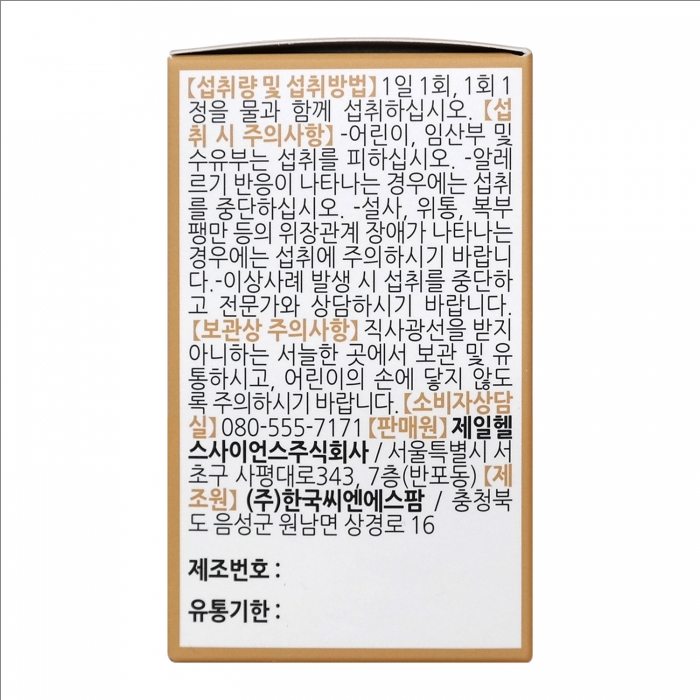 【섭취량 및 섭취방법】1일 1회, 1회 1
정을 물과 함께 섭취하십시오. 【섭
취 시 주의사항】 -어린이, 임산부 및
수유부는 섭취를 피하십시오. -알레
르기 반응이 나타나는 경우에는 섭취
를 중단하십시오. -설사, 위통, 복부
팽만 등의 위장관계 장애가 나타나는
경우에는 섭취에 주의하시기 바랍니
다.-이상사례 발생 시 섭취를 중단하
고 전문가와 상담하시기 바랍니다.
【보관상 주의사항】 직사광선을 받지
아니하는 서늘한 곳에서 보관 및 유
통하시고, 어린이의 손에 닿지 않도
록 주의하시기 바랍니다.【소비자상담
실】080-555-7171【판매원】제일헬
스사이언스주식회사 / 서울특별시 서
초구 사평대로343, 7층(반포동)【제
조원】 (주)한국씨엔에스팜 / 충청북
도 음성군 원남면 상경로 16
제조번호 :
유통기한 :